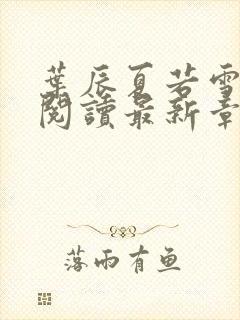 葉辰夏若雪
閱讀最新章
落雨有鱼